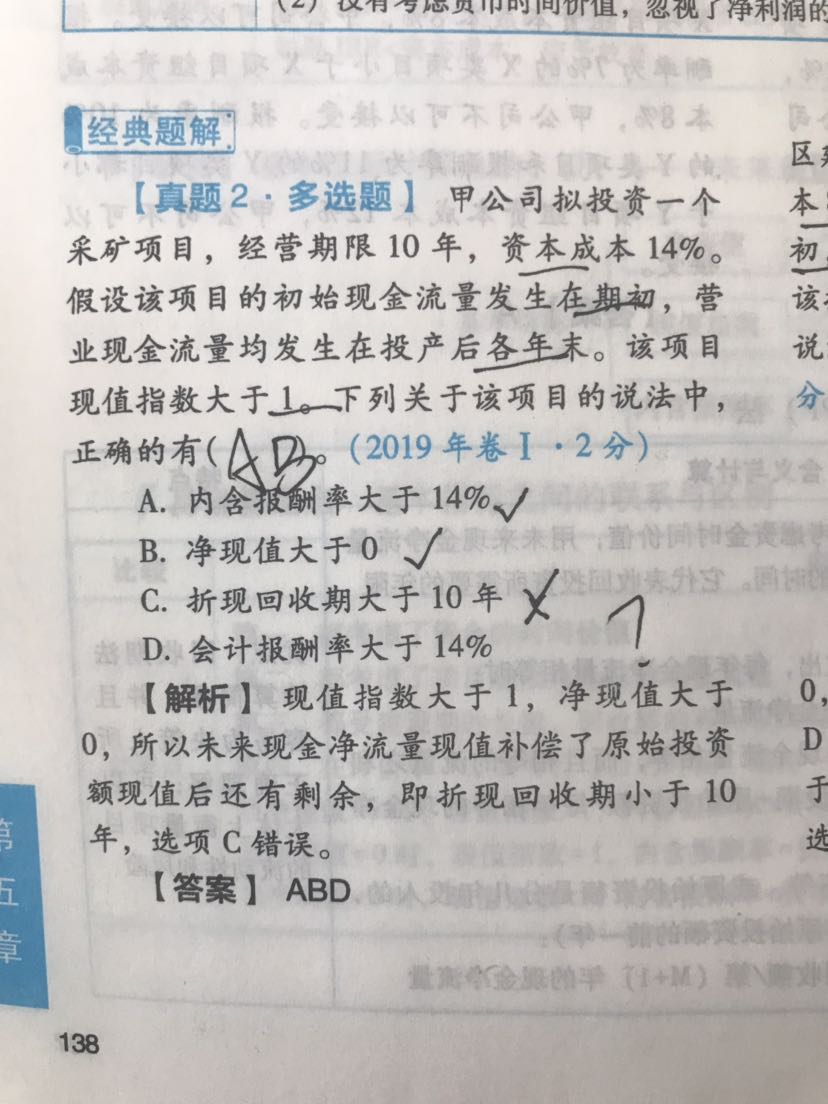 (2)没有考虑货币时间价值，忽视了净利润的
经典题解
【真题2·多选题】 甲公司拟投资一个
采矿项目，经营期限10年，资本成本14%。
假设该项目的初始现金流量发生在期初，营
业现金流量均发生在投产后各年末。该项目
现值指数大于1。下列关于该项目的说法中，
正确的有(AB)。(2019年卷Ⅰ·2分)
A. 内含报酬率大于14%✓
B. 净现值大于0 ✓
C. 折现回收期大于10年 ✗
D. 会计报酬率大于14% ?
【解析】现值指数大于1，净现值大于
0，所以未来现金净流量现值补偿了原始投资
额现值后还有剩余，即折现回收期小于10
年，选项C错误。
【答案】 ABD
第五章
138
区
本
初，
该
说
分
0，
D
于
选